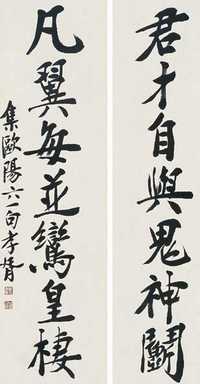 君才自與鬼神鬭
凡翼每並鸞皇棲
集歐陽六一句孝胥